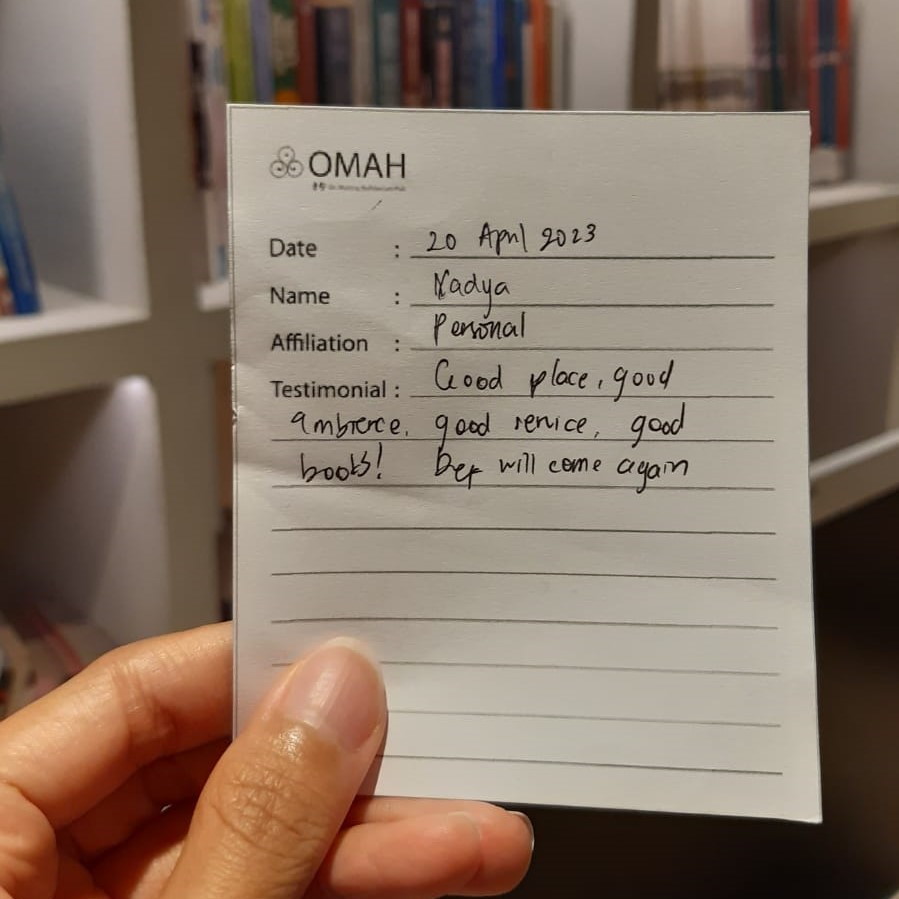 OMAH
Date : 20 April 2023
Name : Nadya
Affiliation : Personal
Testimonial : Good place, good
ambience, good service, good
books! Def will come again